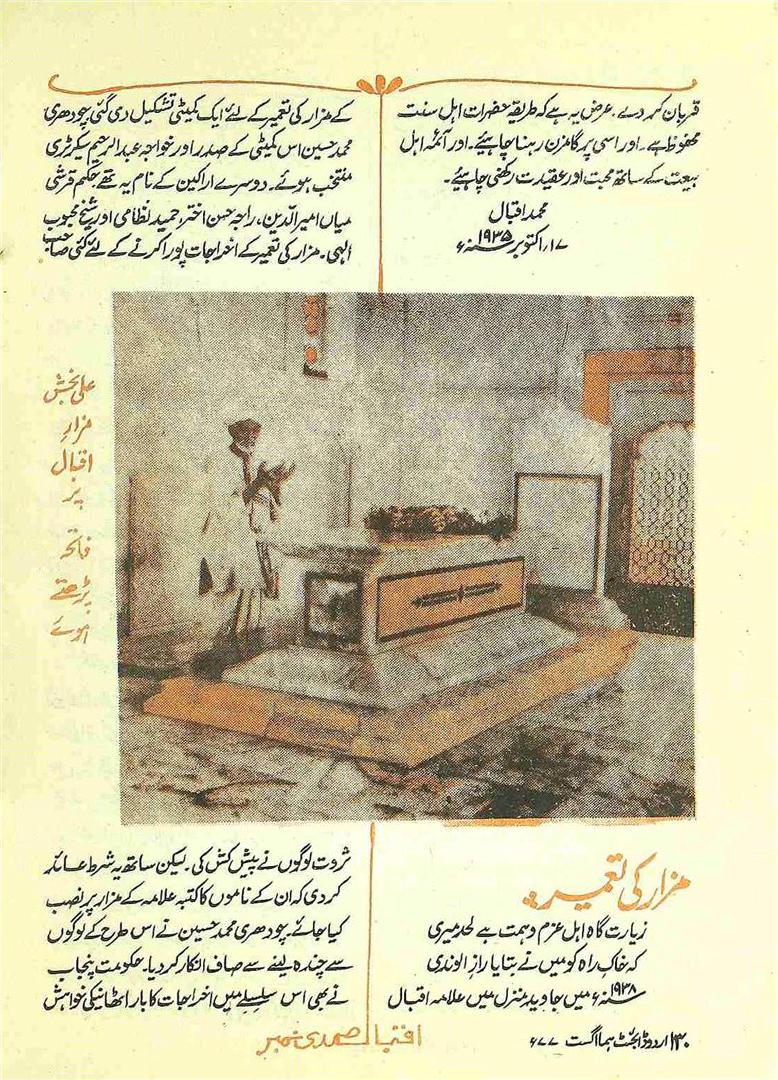 قربان کر دے. عرض یہ ہے کہ طریقہ حضرات اہل سنت
محفوظ ہے۔ اور اسی پر گامزن رہنا چاہیئے۔ اور آئمۂ اہل
بیعت کے ساتھ محبت اور عقیدت رکھنی چاہیئے۔
محمد اقبال
۱۷؍اکتوبر ۱۹۳۵ء
مزار کی تعمیر
زیارت گاہ اہل عزم و ہمت ہے لحد میری
کہ خاکِ راہ کو میں نے بتایا رازِ الوندی
۱۹۳۸ء میں جاوید منزل میں علامہ اقبال
کے مزار کی تعمیر کے لئے ایک کمیٹی تشکیل دی گئی چودھری
محمد حسین اس کمیٹی کے صدر اور خواجہ عبدالرحیم سیکرٹری
منتخب ہوئے۔ دوسرے اراکین کے نام یہ تھے. حکیم قرشی
میاں امیرالدین، راجہ حسن اختر، حمید نظامی اور شیخ محبوب
الٰہی. مزار کی تعمیر کے اخراجات پورا کرنے کے لئے کئی صاحب
علی بخش
مزارِ
اقبال
پر
فاتحہ
پڑھتے
ہوئے
ثروت لوگوں نے پیش کش کی. لیکن ساتھ یہ شرط عائد
کر دی کہ ان کے ناموں کا کتبہ علامہ کے مزار پر نصب
کیا جائے. چودھری محمد حسین نے اس طرح کے لوگوں
سے چندہ لینے سے صاف انکار کر دیا. حکومت پنجاب
نے بھی اس سلسلے میں اخراجات کا بار اٹھانیکی خواہش
۱۳۰ اردو ڈائجسٹ ہما اگست ۷۷ء
اقبال صدی نمبر